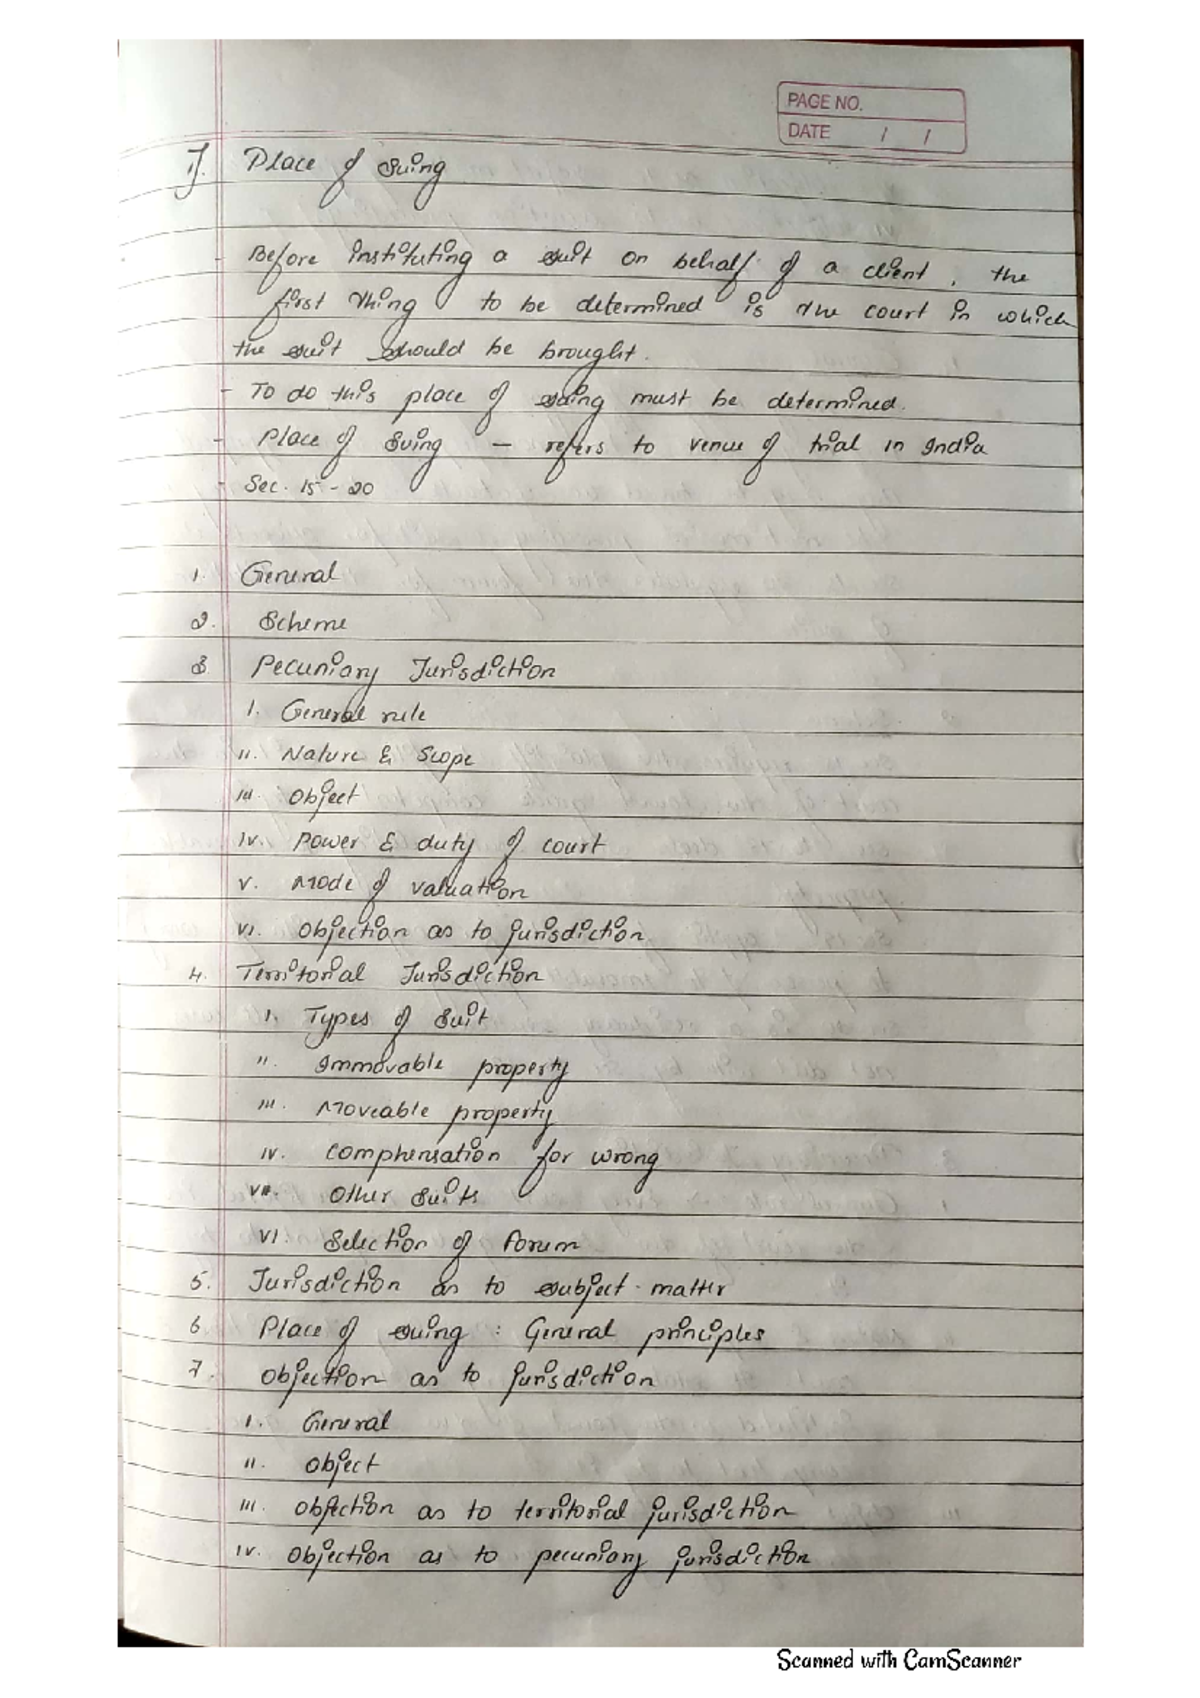 PAGE NO.
DATE / /
1). Place of Suing
- Before instituting a suit on behalf of a client, the
first thing to be determined is the court in which
the suit should be brought.
- To do this place of suing must be determined.
- Place of Suing – refers to venue of trial in India
- Sec. 15 - 20
1. General
2. Scheme
3. Pecuniary Jurisdiction
i. General rule
ii. Nature & Scope
iii. Object
iv. Power & duty of court
v. Mode of valuation
vi. Objection as to jurisdiction
4. Territorial Jurisdiction
i. Types of Suit
ii. Immovable property
iii. Moveable property
iv. Comphensation for wrong
v. Other Suits
vi. Selection of Forum
5. Jurisdiction as to subject-matter
6 Place of suing : General principles
7. Objection as to jurisdiction
i. General
ii. Object
iii. Objection as to territorial jurisdiction
iv. Objection as to pecuniary jurisdiction
Scanned with CamScanner